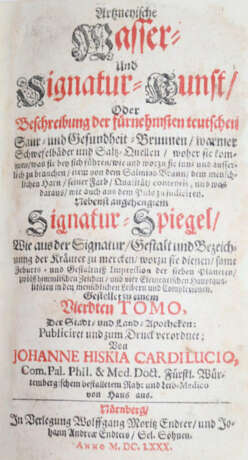 Artzneyische
Wasser-
Und
Signatur-Kunst/
Oder
Beschreibung der fürnehmsten teutschen
Saur- und Gesundheit-Brunnen/ warmer
Schwefelbäder und Saltz-Quellen/ woher sie kom-
men/ was sie bey sich führen/ wie und worzu sie inn- und äusser-
lich zu brauchen/ item von dem Salinas Brunn/ dem mensch-
lichen Harn/ seiner Farb/ Quälität/ contentis, und was
daraus/ wie auch aus dem Puls zu judiciren.
Nebenst angehengtem
Signatur-Spiegel/
Wie aus der Signatur/ Gestalt und Bezeich-
nung der Kräuter zu mercken/ worzu sie dienen/ samt
Geburts- und Gestaltnüß Impression der sieben Planeten/
zwölff himmlischen Zeichen/ und vier Elementischen Hauptqua-
litäten in den menschlichen Leibern und Complexionen.
Gestellet zu einem
Vierdten TOMO,
Der Stadt- und Land-Apotheken:
Publiciret und zum Druck verordnet;
Von
JOHANNE HISKIA CARDILUCIO,
Com. Pal. Phil. & Med. Doct. Fürstl. Wür-
tembergischem bestalletem Raht und Leib-Medico
von Haus aus.
Nürnberg/
In Verlegung Wolffgang Moritz Endter/ und Jo-
hann Andreæ Endters/ Sel. Söhnen.
ANNO M. DC. LXXX.